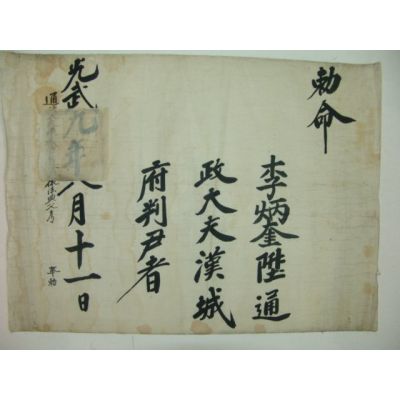 勅命
李炳奎陞通
政大夫漢城
府判尹者
光武九年八月十一日